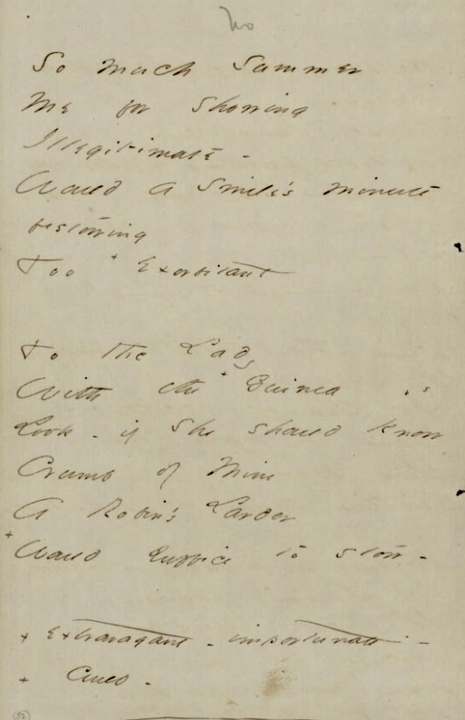 No
So much Summer
Me for showing
Illegitimate -
Would a Smile's minute
bestowing
Too + Exorbitant
To the Lady
With the + Guinea
Look - if She should know
Crumb of Mine
A Robin's Larder
+ Would suffice to stow -
+ Extravagant - importunate -
+ Could -